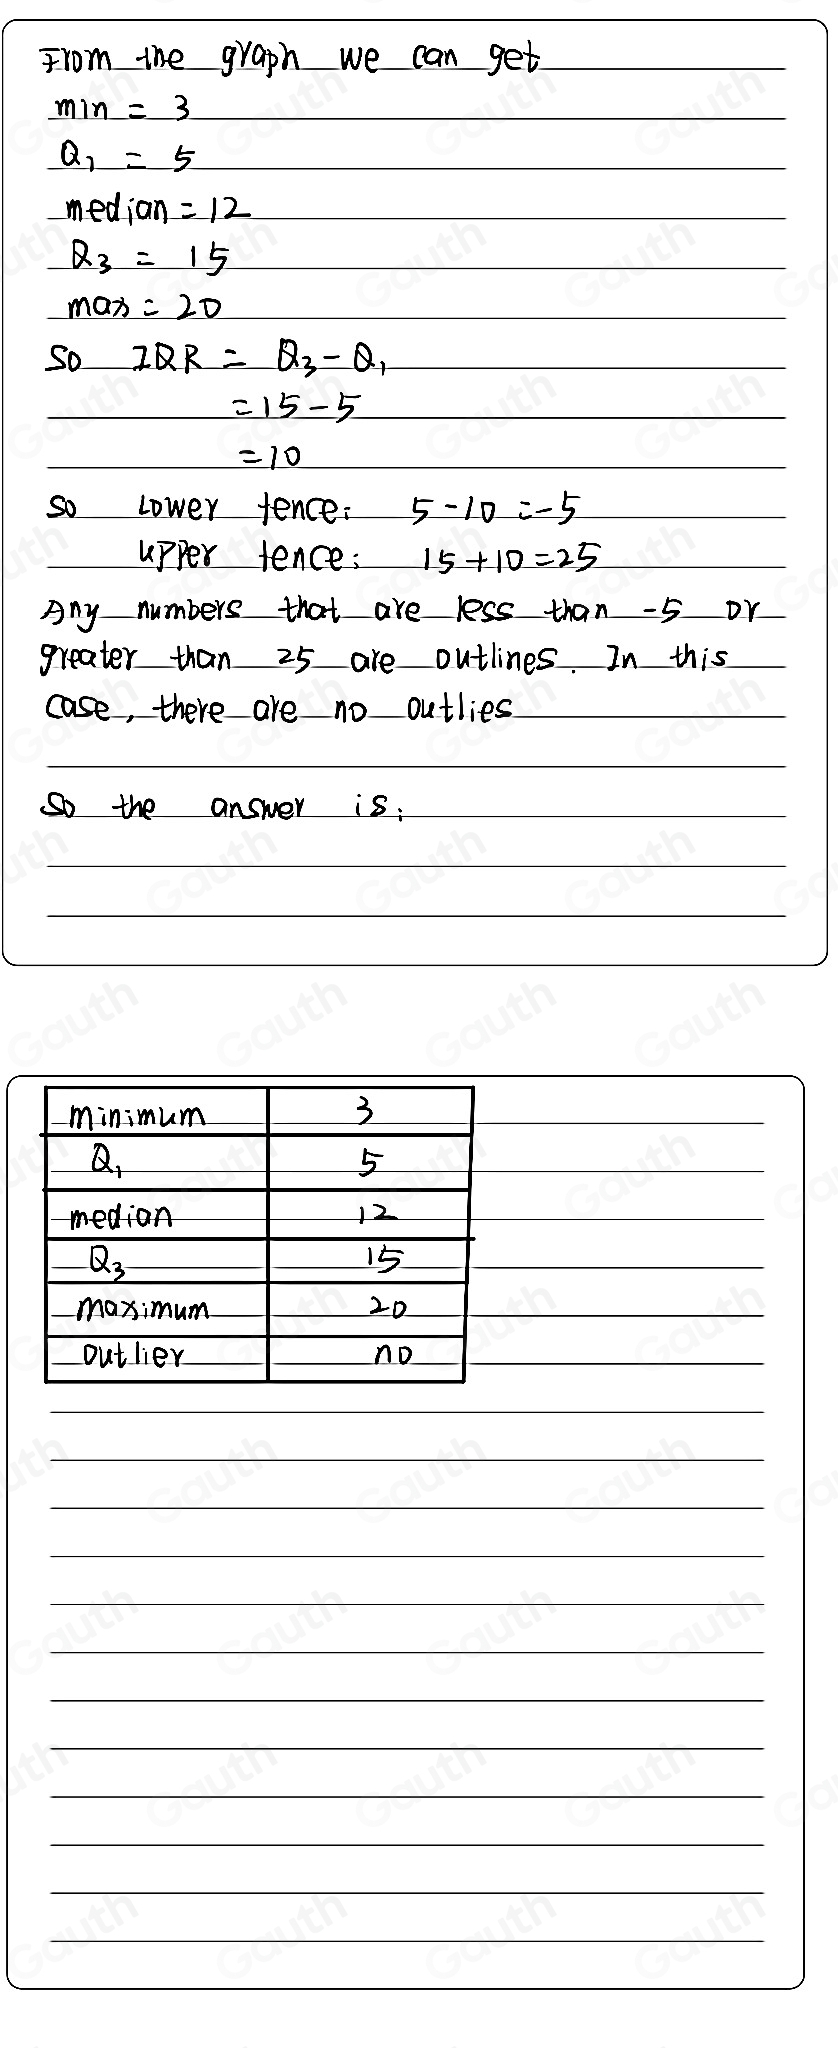 From the graph we can get
min = 3
Q₁ = 5
median = 12
Q₃ = 15
max = 20
So IQR = Q₃ - Q₁
= 15 - 5
= 10
So Lower fence: 5 - 10 = -5
Upper fence: 15 + 10 = 25
Any numbers that are less than -5 or
greater than 25 are outlines. In this
case, there are no outlies
So the answer is:
minimum 3
Q₁ 5
median 12
Q₃ 15
maximum 20
outlier no
Gauth